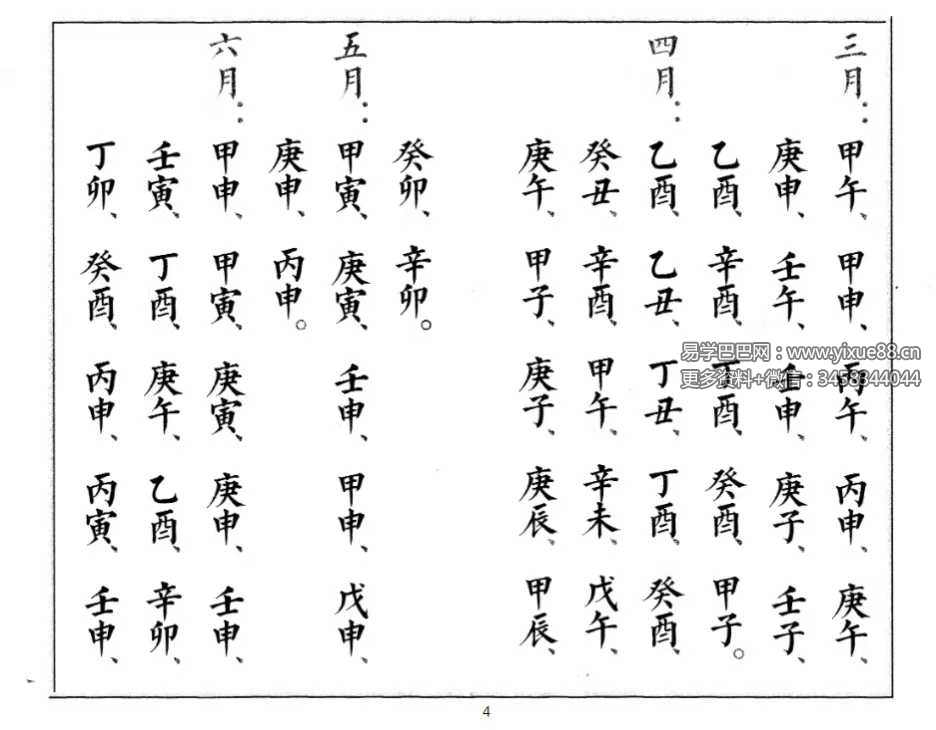 三月：甲午、甲申、丙午、丙申、庚午、
庚申、壬午、壬申、庚子、壬子、
乙酉、辛酉、丁酉、癸酉、甲子。
四月：乙酉、乙丑、丁丑、丁酉、癸酉、
癸丑、辛酉、甲午、辛未、戊午、
庚午、甲子、庚子、庚辰、甲辰、
癸卯、辛卯。
五月：甲寅、庚寅、壬申、甲申、戊申、
庚申、丙申。
六月：甲申、甲寅、庚寅、庚申、壬申、
壬寅、丁酉、庚午、乙酉、辛卯、
丁卯、癸酉、丙申、丙寅、壬申、
易学巴巴网：www.yixue88.cn
更多资料+微信：3458344044
4